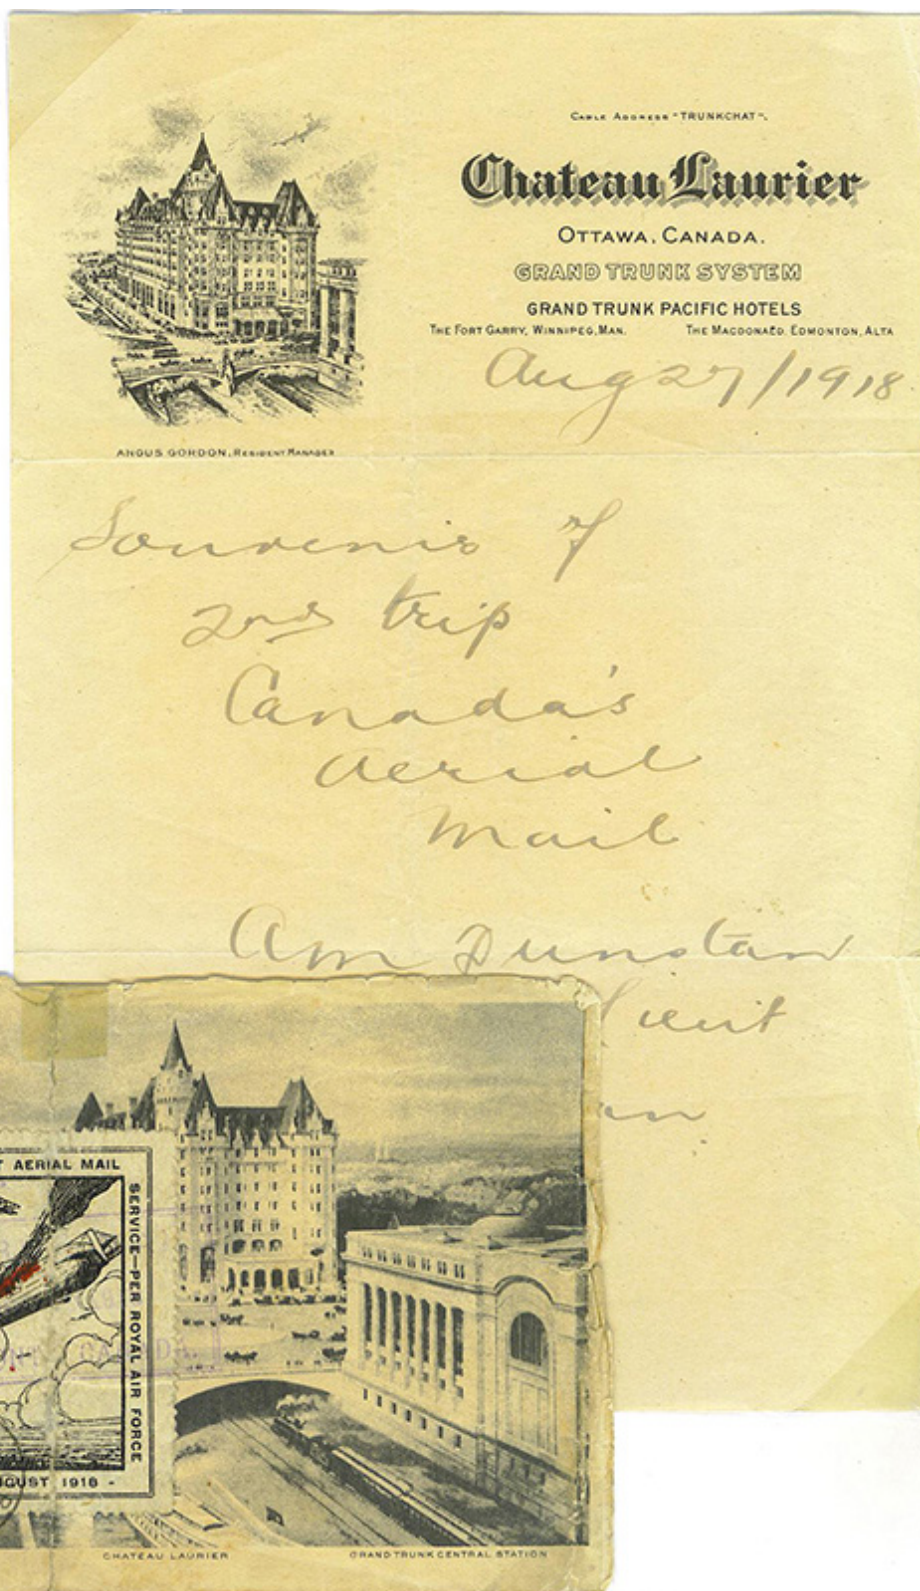 CABLE ADDRESS "TRUNKCHAT".
Chateau Laurier
OTTAWA, CANADA.
GRAND TRUNK SYSTEM
GRAND TRUNK PACIFIC HOTELS
THE FORT GARRY, WINNIPEG, MAN. THE MACDONALD EDMONTON, ALTA
Aug 27/1918
ANGUS GORDON, RESIDENT MANAGER
Souvenir of
2nd trip
Canada's
Aerial
Mail
Am Dunstan
T AERIAL MAIL
SERVICE—PER ROYAL AIR FORCE
GUST 1918 -
CHATEAU LAURIER
GRAND TRUNK CENTRAL STATION